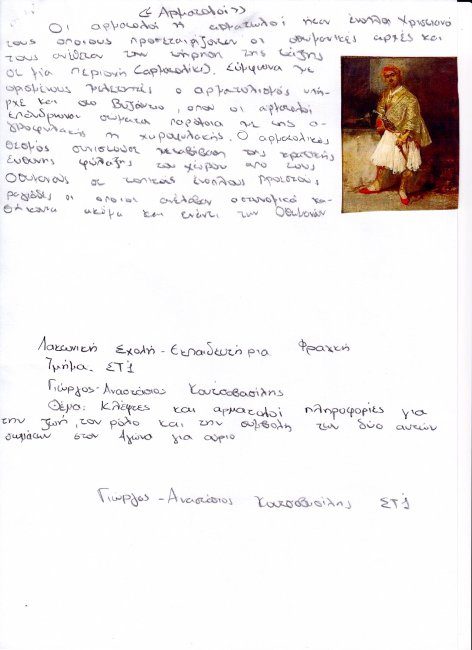 << Αρματολοί >>
Οι αρματολοί ή αρματωλοί ήταν ένοπλοι Χριστιανοί
τους οποίους προσεταιρίζονταν οι οθωμανικές αρχές και
τους ανέθεταν την τήρηση της τάξης
σε μία περιοχή (αρματολίκι). Σύμφωνα με
ορισμένους μελετητές ο αρματολισμός υπή-
ρχε και στο Βυζάντιο, όπου οι αρματολοί
επάνδρωναν σώματα παρόμοια με της α-
γροφυλακής ή χωροφυλακής. Ο αρματολικός
θεσμός συνιστούσε μεταβίβαση της κρατικής
ευθύνης φύλαξης του χώρου από τους
Οθωμανούς σε τοπικούς ένοπλους προεστούς,
οι οποίοι ανέλαβαν αστυνομικά κα-
θήκοντα ακόμα και έναντι των Οθωμανών
Λακωνική Σχολή - Εκπαιδευτήρια Φραγκή
Τμήμα: ΣΤ1
Γιώργος-Αναστάσιος Κουτσοβασίλης
Θέμα: Κλέφτες και αρματολοί πληροφορίες για
την ζωή, τον ρόλο και την συμβολή των δύο αυτών
ομάδων στον Αγώνα για αύριο
Γιώργος - Αναστάσιος Κουτσοβασίλης ΣΤ1